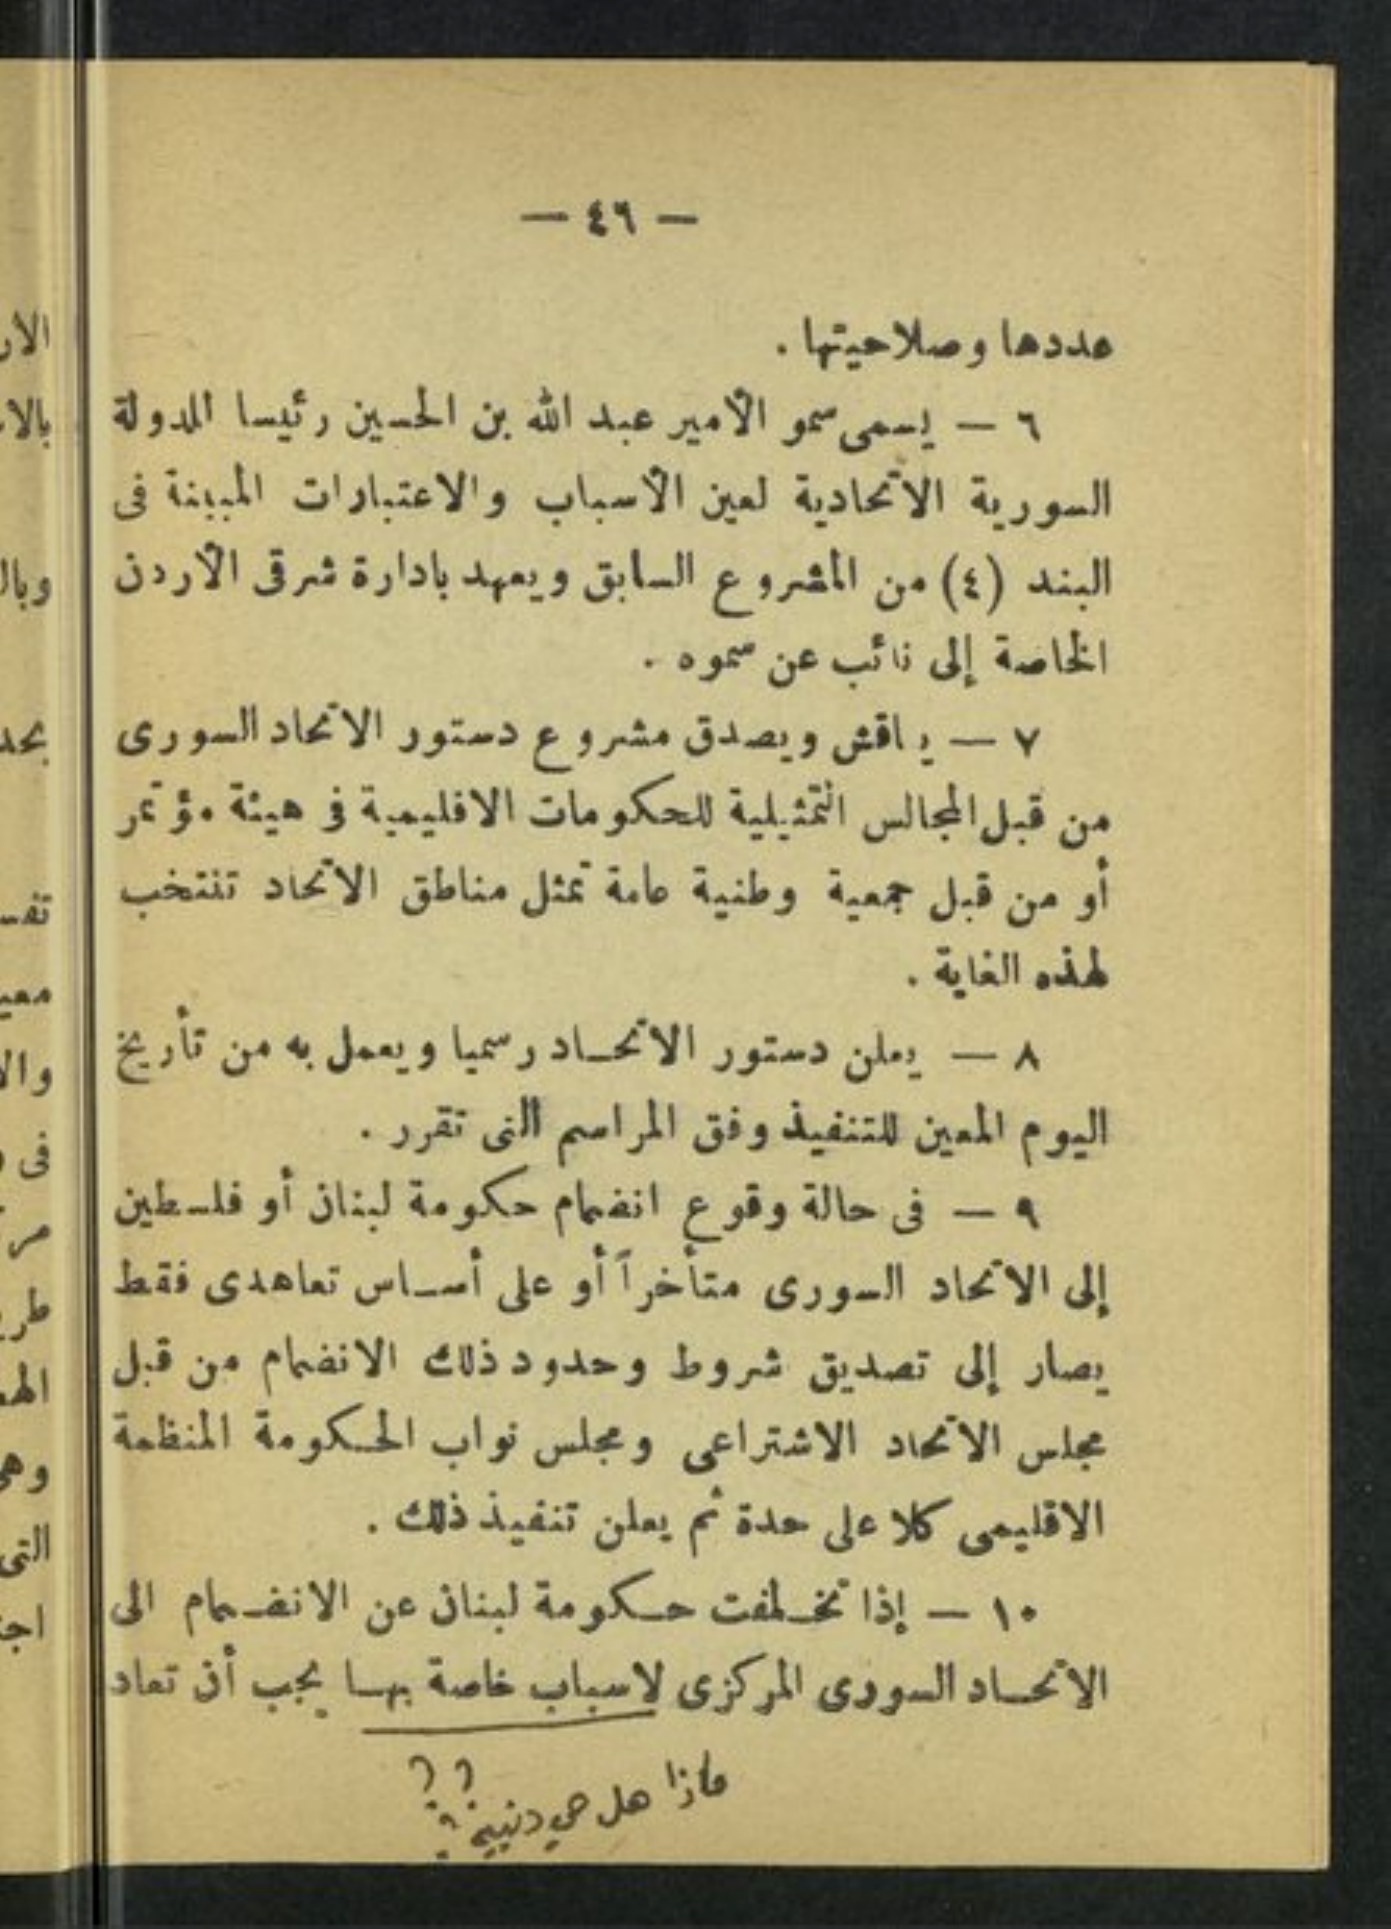 — ٤٦ —
عددها وصلاحيتها .
٦ — يسمى سمو الأمير عبد الله بن الحسين رئيسا للدولة
السورية الاتحادية لعين الأسباب والاعتبارات المبينة فى
البند (٤) من المشروع السابق ويعهد بادارة شرقى الأردن
الخاصة إلى نائب عن سموه .
٧ — يـاقش ويصدق مشروع دستور الاتحاد السورى
من قبل المجالس التمثيلية للحكومات الاقليمية فى هيئة مؤتمر
أو من قبل جمعية وطنية عامة تمثل مناطق الاتحاد تنتخب
لهذه الغاية .
٨ — يعلن دستور الاتحـاد رسميا ويعمل به من تأريخ
اليوم المعين للتنفيذ وفق المراسم التى تقرر .
٩ — فى حالة وقوع انضمام حكومة لبنان أو فلسطين
إلى الاتحاد السورى متأخراً أو على أسـاس تعاهدى فقط
يصار إلى تصديق شروط وحدود ذلك الانضمام من قبل
مجلس الاتحاد الاشتراعى ومجلس نواب الحـكومة المنظمة
الاقليمى كلا على حدة ثم يعلن تنفيذ ذلك .
١٠ — إذا تخـلفت حـكومة لبنان عن الانضـمام الى
الاتحـاد السورى المركزى لاسباب خاصة بهـا يجب أن تعاد
ماذا هل هي دنيية ؟ ؟ ؟
الأر
بالا
وبال
بحد
تفسـ
معيـ
والا
فى
مر
طريـ
المـ
وهى
التى
اجتـ